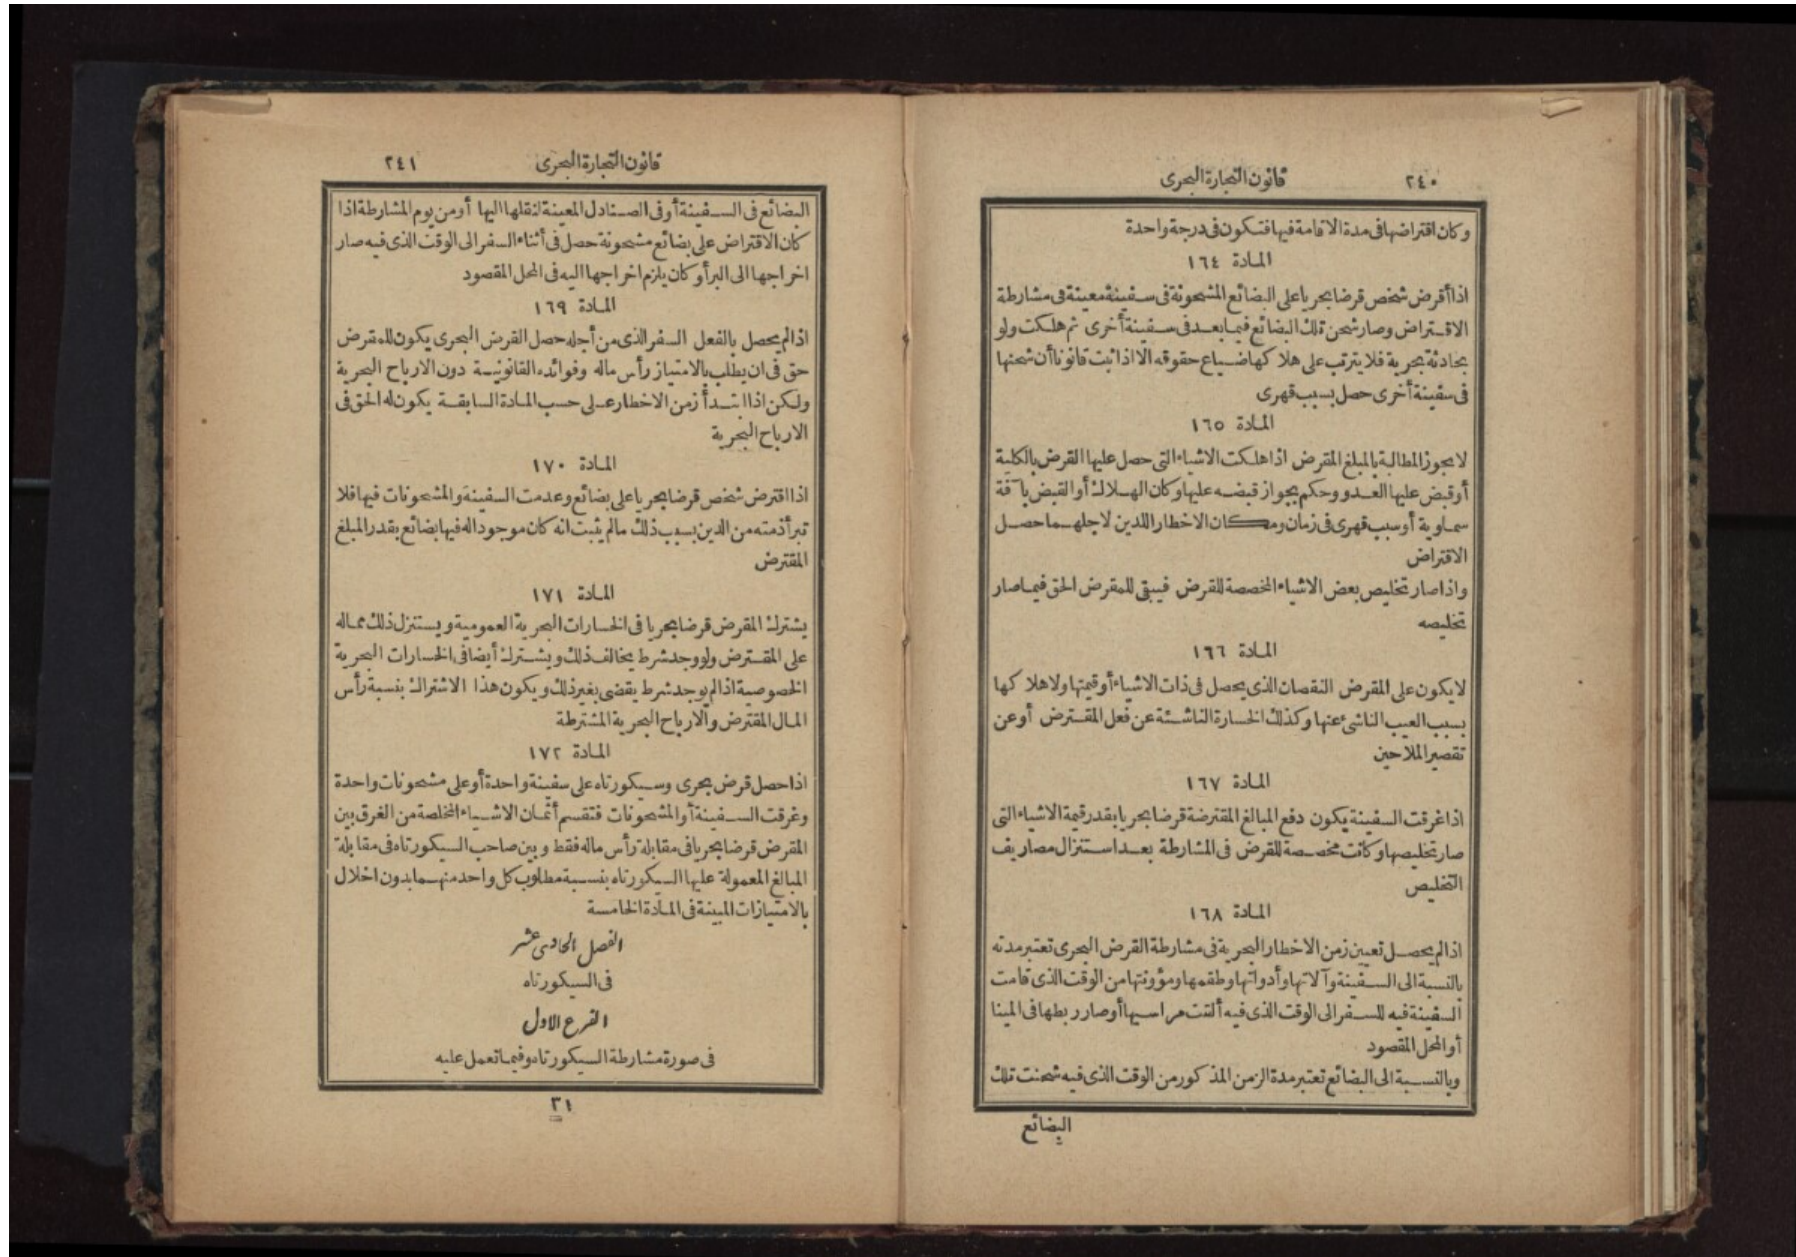 ٢٤٠
قانون التجارة البحرى
وكان اقتراضها فى مدة الاقامة فيها فتكون فى درجة واحدة
المادة ١٦٤
اذا أقرض شخص قرضا بحريا على البضائع المشحونة فى سفينة معينة فى مشارطة
الاقتراض وصار شحن تلك البضائع فيما بعد فى سفينة أخرى ثم هلكت ولو
بحادثة بحرية فلا يترتب على هلاكها ضياع حقوقه الا اذا ثبت قانونا أن شحنها
فى سفينة أخرى حصل بسبب قهرى
المادة ١٦٥
لا يجوز المطالبة بالمبلغ المقرض اذا هلكت الاشياء التى حصل عليها القرض بالكلية
أو قبض عليها العدو وحكم بجواز قبضه عليها وكان الهلاك أو القبض بآفة
سماوية أو سبب قهرى فى زمان ومكان الاخطار اللذين لاجلهما حصل
الاقتراض
واذا صار تخليص بعض الاشياء المخصصة للقرض فيبقى للمقرض الحق فيما صار
تخليصه
المادة ١٦٦
لا يكون على المقرض النقصان الذى يحصل فى ذات الاشياء أو قيمتها ولا هلاكها
بسبب العيب الناشئ عنها وكذلك الخسارة الناشئة عن فعل المقترض أو عن
تقصير الملاحين
المادة ١٦٧
اذا غرقت السفينة يكون دفع المبالغ المقترضة قرضا بحريا بقدر قيمة الاشياء التى
صار تخليصها وكانت مخصصة للقرض فى المشارطة بعد استنزال مصاريف
التخليص
المادة ١٦٨
اذا لم يحصل تعيين زمن الاخطار البحرية فى مشارطة القرض البحرى تعتبر مدته
بالنسبة الى السفينة وآلاتها وأدواتها وطقمها ومؤونتها من الوقت الذى قامت
السفينة فيه للسفر الى الوقت الذى فيه ألقت مراسيها أو صار ربطها فى المينا
أو المحل المقصود
وبالنسبة الى البضائع تعتبر مدة الزمن المذكور من الوقت الذى فيه شحنت تلك
البضائع
قانون التجارة البحرى
٢٤١
البضائع فى السفينة أو فى الصنادل المعينة لنقلها اليها أو من يوم المشارطة اذا
كان الاقتراض على بضائع مشحونة حصل فى أثناء السفر الى الوقت الذى فيه صار
اخراجها الى البر أو كان يلزم اخراجها اليه فى المحل المقصود
المادة ١٦٩
اذا لم يحصل بالفعل السفر الذى من أجله حصل القرض البحرى يكون للمقرض
حق فى ان يطلب بالامتياز رأس ماله وفوائده القانونية دون الارباح البحرية
ولكن اذا ابتدأ زمن الاخطار على حسب المادة السابقة يكون له الحق فى
الارباح البحرية
المادة ١٧٠
اذا اقترض شخص قرضا بحريا على بضائع وعدمت السفينة والمشحونات فيها فلا
تبرأ ذمته من الدين بسبب ذلك مالم يثبت انه كان موجودا له فيها بضائع بقدر المبلغ
المقترض
المادة ١٧١
يشترك المقرض قرضا بحريا فى الخسارات البحرية العمومية ويستنزل ذلك مماله
على المقترض ولو وجد شرط يخالف ذلك ويشترك أيضا فى الخسارات البحرية
الخصوصية اذا لم يوجد شرط يقضى بغير ذلك ويكون هذا الاشتراك بنسبة رأس
المال المقترض والارباح البحرية المشترطة
المادة ١٧٢
اذا حصل قرض بحرى وسيكورتاه على سفينة واحدة أو على مشحونات واحدة
وغرقت السفينة أو المشحونات فتقسم أثمان الاشياء المخلصة من الغرق بين
المقرض قرضا بحريا فى مقابلة رأس ماله فقط وبين صاحب السيكورتاه فى مقابلة
المبالغ المعمولة عليها السيكورتاه بنسبة مطلوب كل واحد منهما بدون اخلال
بالامتيازات المبينة فى المادة الخامسة
الفصل الحادى عشر
فى السيكورتاه
الفرع الاول
فى صورة مشارطة السيكورتاه وفيما تعمل عليه
٣١